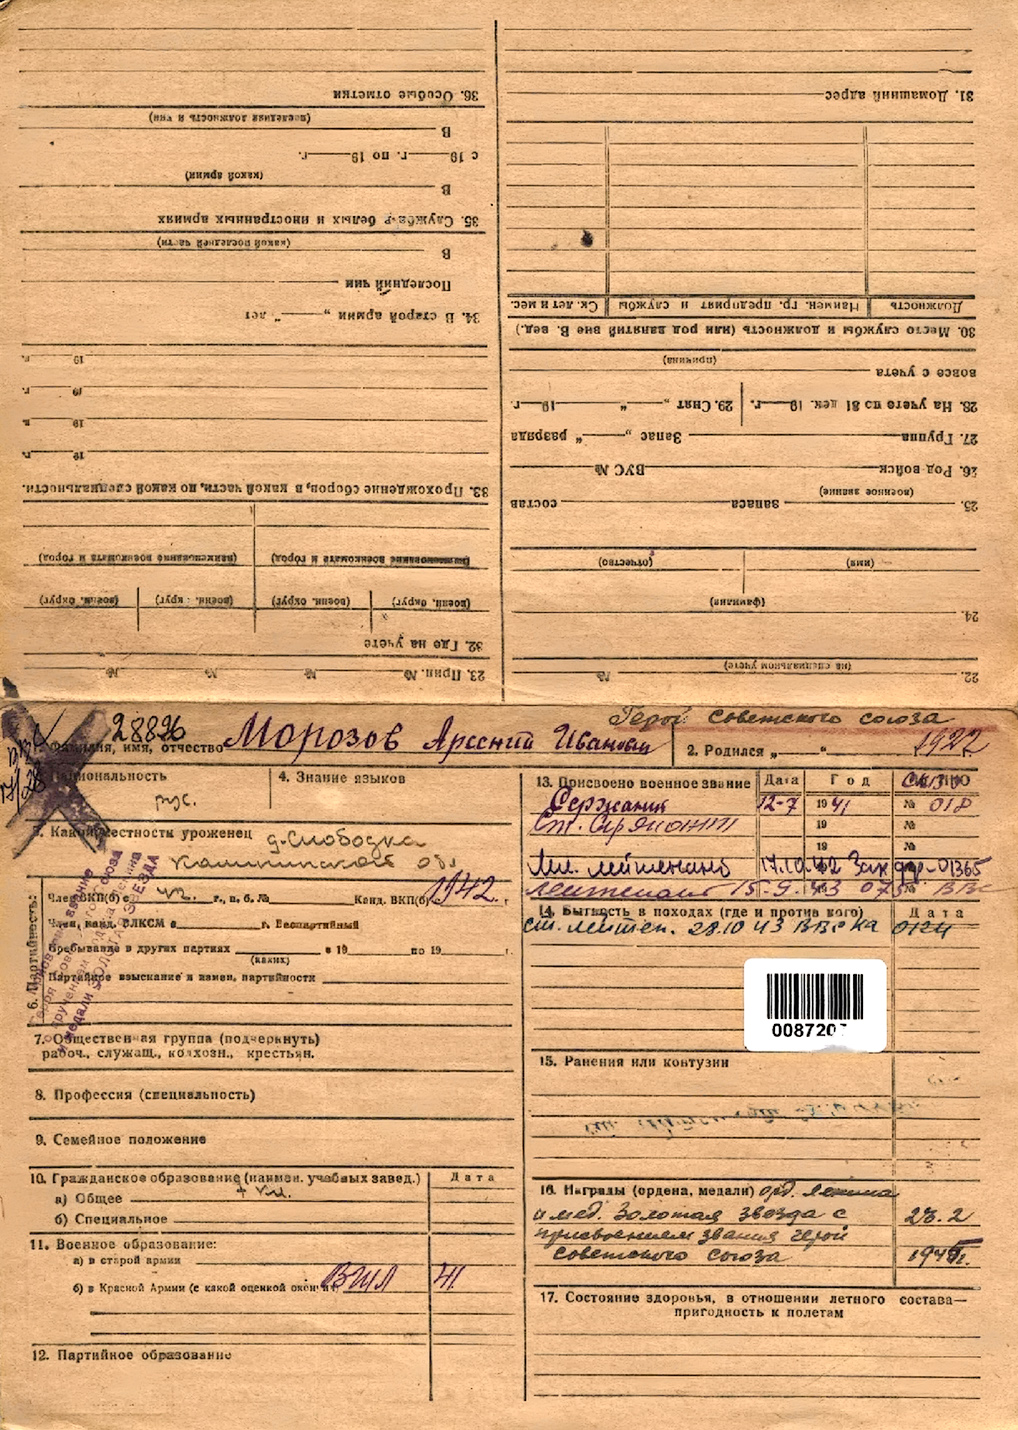 36. Особые отметки
(последняя должность и чин)
В
с 19 г. по 19 г.
(какой армии)
В
35. Служба в белых и иностранных армиях
(какой последней части)
В
Последний чин
34. В старой армии „ “ лет
19 г.
19 г.
19 г.
19 г.
33. Прохождение сборов, в какой части, по какой специальности.
(наименование военкомата и город) (наименование военкомата и город)
(воен. округ) (воен. округ) (воен. округ) (воен. округ)
32. Где на учете
23. Прип. № № № №
31. Домашний адрес
Должность Наимен. гр. предприят и службы Ск. лет и мес.
30. Место службы и должность (или род занятий вне В. вед.)
(причина)
вовсе с учета
28. На учете по 81 дек. 19 г. 29. Снят „ “ 19 г.
27. Группа Запас „ “ разряда
26. Род войск ВУС №
(военное звание)
25. запаса состав
(имя) (отчество)
(фамилия)
24.
(на специальном учете)
22. №
Герой Советского союза
28826
Фамилия, имя, отчество Морозов Арсений Иванович
2. Родился „ “ 1922
Национальность рус.
4. Знание языков
5. Какой местности уроженец д. Слободка
Калининской обл
6. Партийность:
Член ВКП(б) с г., п. б. № Канд. ВКП(б) 1942 г.
Член, канд. ВЛКСМ с г. Беспартийный
Пребывание в других партиях в 19 по 19 г.
(каких)
Партийные взыскание и измен. партийности
7. Общественная группа (подчеркнуть)
рабоч., служащ., колхозн., крестьян.
8. Профессия (специальность)
9. Семейное положение
10. Гражданское образование (наимен. учебных завед.) Дата
а) Общее 7 кл.
б) Специальное
11. Военное образование:
а) в старой армии
б) в Красной Армии (с какой оценкой окончил) ВШЛ 41
12. Партийное образование
13. Присвоено военное звание Дата Год
Сержант 12-7 1941 № 018
Ст. Сержант 19 №
19 №
Мл. лейтенант 17.10.42 01365
лейтенант 15-9. 1943 ВВС
14. Бытность в походах (где и против кого) Дата
ст. лейтен. 28.10 43 ВВС КА 0124
008720
15. Ранения или контузии
16. Награды (ордена, медали) орд. Ленина
и мед. Золотая звезда с
присвоением звания герой
Советского союза
17. Состояние здоровья, в отношении летного состава—
пригодность к полетам